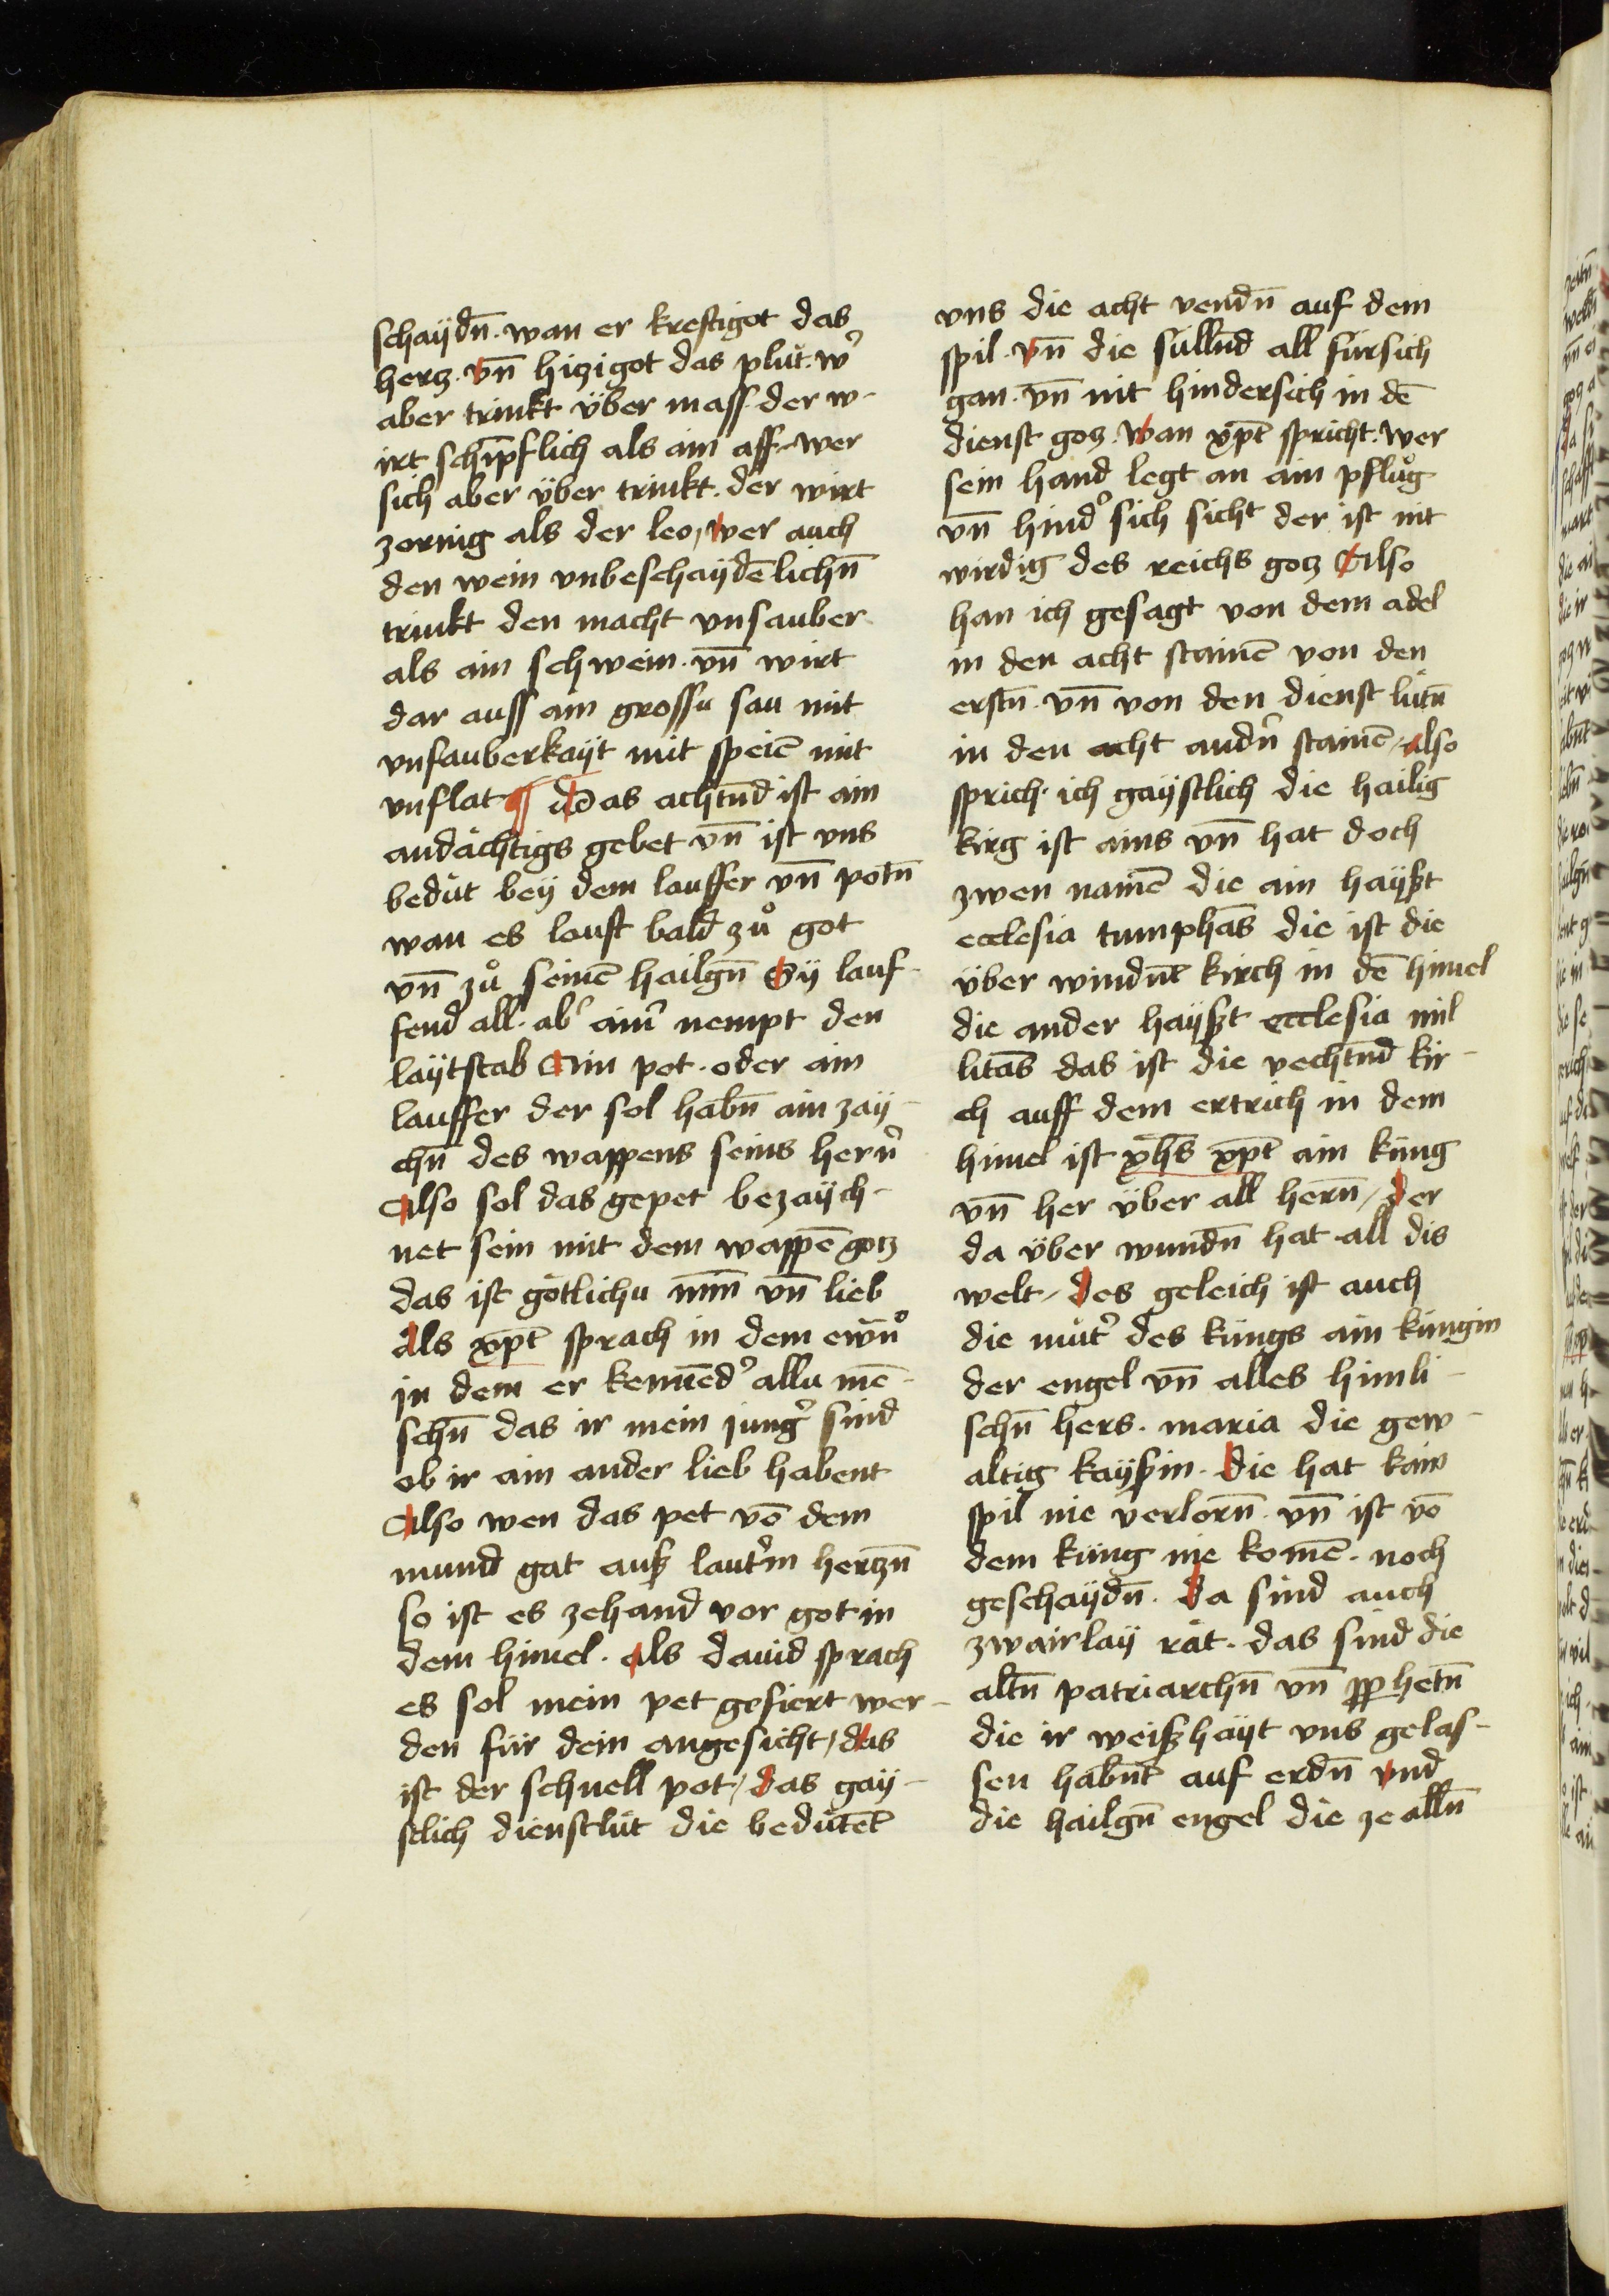 schaÿdn̄. wan er kreftigot das
hertz. vn̄ hitzigot das plůt. wʾ
aber trinkt über mass der w-
irt schīpflich als ain aff. wer
sich aber über trinkt. der wirt
zornig als der leo, wer auch
den wein vnbeschaÿdēlichn̄
trinkt den macht vnsauber
als ain schwein. vn̄ wirt
dar auss ain grossu sau mit
vnsauberkaÿt mit speiē mit
vnflat ¶ Das achtn̄d ist ain
andächtigs gebet vn̄ ist vns
bedüt beÿ dem lauffer vn̄ potn̄
wan es louft bald zů got
vn̄ zů seinē hailgn̄ Sÿ lauf-
fend all. abʾ ainʾ nempt den
laÿtstab Ain pot. oder ain
lauffer der sol habn̄ ain zaÿ-
chn̄ des wappens seins hern̄
Also sol das gepet bezaÿch-
net sein mit dem wappē gotz
das ist götlichu mīn vn̄ lieb
Als xp̄t sprach in dem ewn̄ʾ
in dem er kennēdʾ allu mē-
schn̄ das ir mein jungʾ sind
ob ir ain ander lieb habent
Also wen das pet vō dem
mund gat auß lautʾm hertzn̄
so ist es zehand vor got in
dem himel. Als dauid sprach
es sol mein pet gefiert wer-
den für dein angesicht, das
ist der schnell pot, das gaÿ-
stlich dienstlüt die bedütēt
vns die acht vendn̄ auf dem
spil. vn̄ die süllnd all fürsich
gan. vn̄ nit hindersich in dē
dienst gotz. Wan xp̄t spricht. wer
sein hand legt an ain pflůg
vn̄ hindʾ sich sicht der ist nit
wirdig des reichs gotz Also
han ich gesagt von dem adel
in den acht stainē von den
erstn̄. vn̄ von den dienst lütn̄
in den acht andn̄ stainē, also
sprich. ich gaÿstlich die hailig
kirg ist ains vn̄ hat doch
zwen namē die ain haÿßt
ecclesia tumphās die ist die
über windn̄t kirch in dē himel
die ander haÿßt ecclesia mil
litās das ist die vechtn̄d kir-
ch auff dem ertrich in dem
himel ist xh̄s xp̄t ain küng
vn̄ her über all hern̄, der
da über wundn̄ hat all dis
welt, des geleich ist auch
die můtʾ des küngs ain küngin
der engel vn̄ alles himli-
schn̄ hers. maria die gew-
altig kaÿßin. die hat kain
spil nie verlorn̄. vn̄ ist vō
dem küng nie komē. noch
geschaÿdn̄. Da sind auch
zwairlaÿ rät. das sind die
altn̄ patriarchn̄ vn̄ ꝓphetn̄
die ir weißhaÿt vns gelas-
sen habn̄t auf erdn̄ vnd
die hailgn̄ engel die ze alln̄